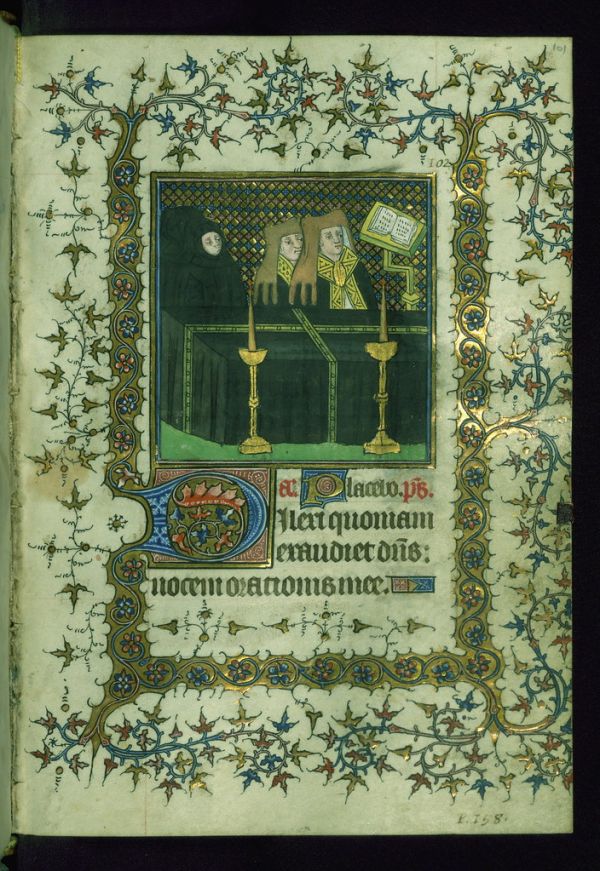 101
102
añ. Placebo. p̄s.
Dilexi quoniam
exaudiet dn̄s:
uocem orationis mee.
P. 158.